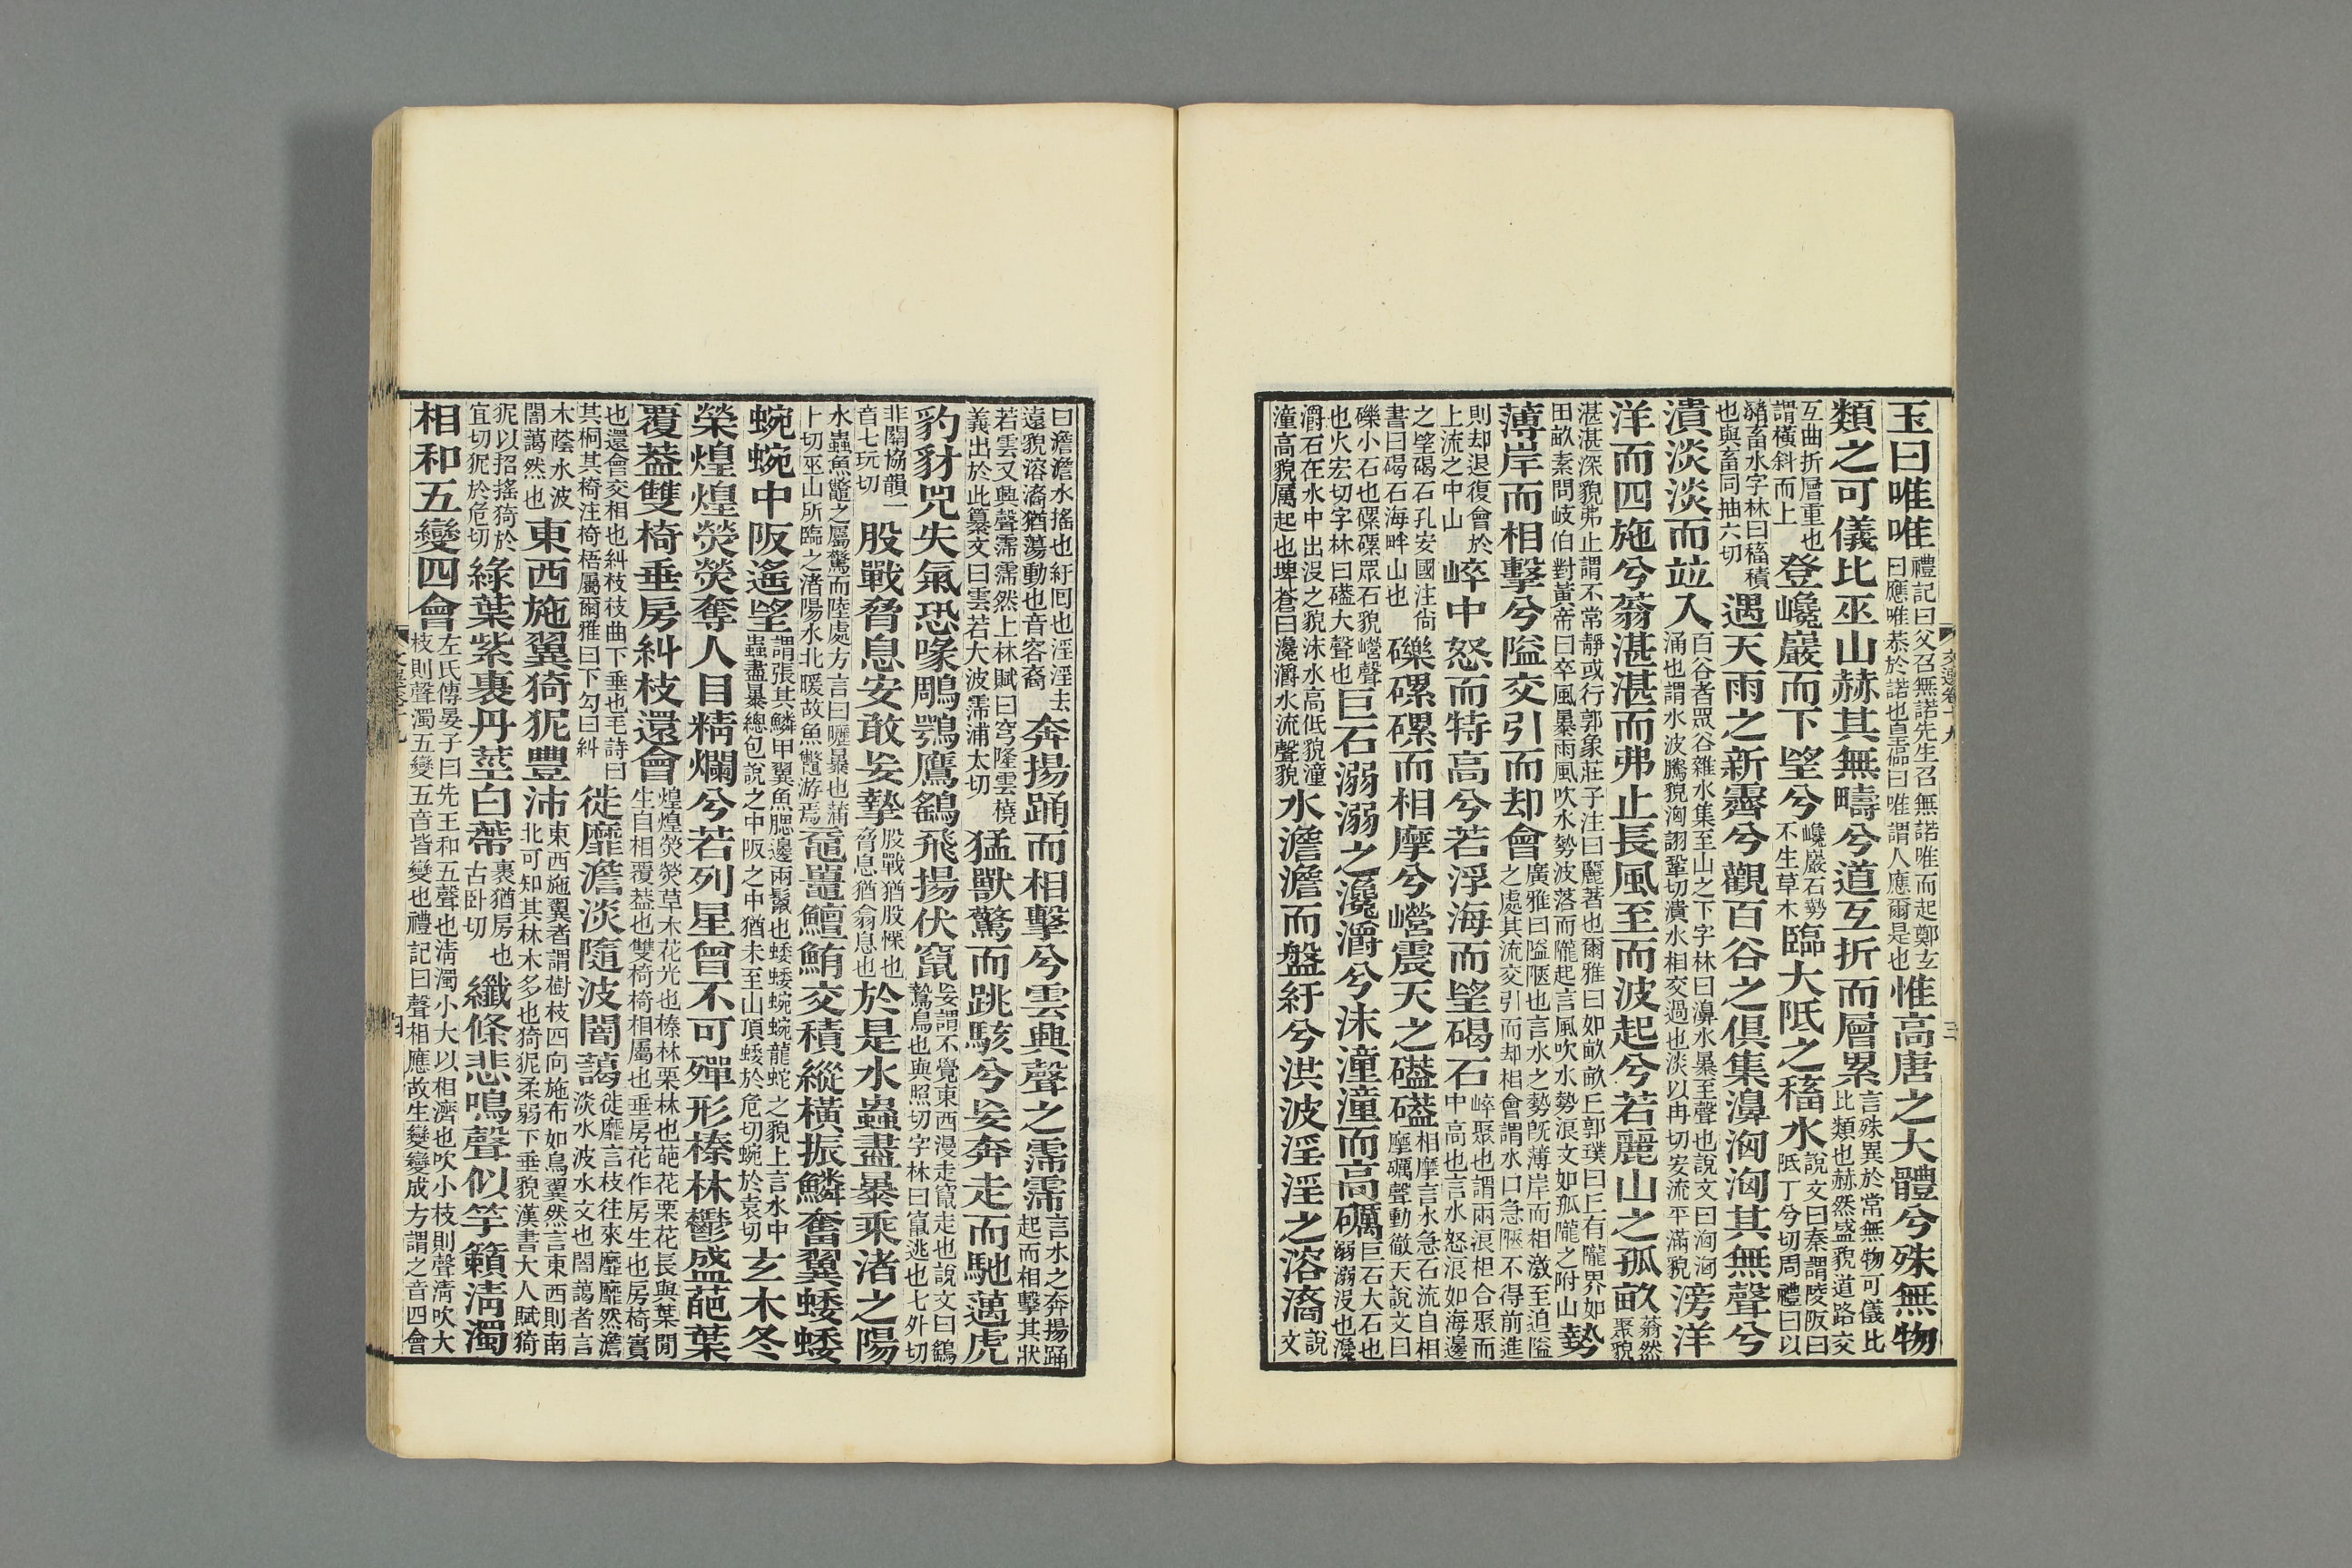 玉曰唯唯禮記曰父召無諾先生召無諾唯而起鄭玄曰應唯恭於諾也皇侃曰唯謂人應爾是也惟高唐之大體兮殊無物
類之可儀比巫山赫其無疇兮道互折而層累言殊異於常無物可儀比比類也赫然盛貌道路交
互曲折層重也謂橫斜而上登巉巖而下望兮巉巖石勢不生草木臨大阺之稸水說文曰秦謂陵阪曰阺丁兮切周禮曰以
豬畜水字林曰稸積也與畜同抽六切遇天雨之新霽兮觀百谷之俱集濞洶洶其無聲兮
潰淡淡而竝入百谷者眾谷雜水集至山之下字林曰濞水暴至聲也說文曰洶洶涌也謂水波騰貌洶詡鞏切潰水相交過也淡以冉切安流平滿貌滂洋
洋而四施兮蓊湛湛而弗止長風至而波起兮若麗山之孤畝蓊然聚貌
湛湛深貌弗止謂不常靜或行郭象莊子注曰麗著也爾雅曰如畝畝丘郭璞曰丘有隴界如田畝素問岐伯對黃帝曰卒風暴雨風吹水勢波落而隴起言風吹水勢浪文如孤隴之附山勢
薄岸而相擊兮隘交引而却會廣雅曰隘陿也言水之勢旣薄岸而相激至迫隘之處其流交引而却相會謂水口急陿不得前進
則却退復會於上流之中山崪中怒而特高兮若浮海而望碣石崪聚也謂兩浪相合聚而中高也言水怒浪如海邊
之望碣石孔安國注尙書曰碣石海畔山也礫磥磥而相摩兮巆震天之礚礚相摩言水急石流自相摩礪聲動徹天說文曰
礫小石也磥磥眾石貌巆聲也火宏切字林曰礚大聲也巨石溺溺之瀺灂兮沫潼潼而高厲巨石大石也溺溺沒也瀺
灂石在水中出沒之貌沫水高低貌潼潼高貌厲起也埤蒼曰瀺灂水流聲貌水澹澹而盤紆兮洪波淫淫之溶㵝說文
文選卷十九 三
曰澹澹水搖也紆回也淫淫去遠貌溶㵝猶蕩動也音容裔奔揚踊而相擊兮雲興聲之霈霈言水之奔揚踊起而相擊其狀
若雲又興聲霈霈然上林賦曰穹隆雲橈義出於此纂文曰雲若大波霈浦太切猛獸驚而跳駭兮妄奔走而馳邁虎
豹豺兕失氣恐喙鵰鶚鷹鷂飛揚伏竄妄謂不覺東西漫走竄走也說文曰鷂鷙鳥也與照切字林曰竄逃也七外切
非關協韻一音七玩切股戰脅息安敢妄摯股戰猶股慄也脅息猶翕息也於是水蟲盡暴乘渚之陽
水蟲魚鼈之屬驚而陸處方言曰曬暴也蒲卜切巫山所臨之渚陽水北暖故魚鼈游焉黿鼉鱣鮪交積縱橫振鱗奮翼蜲蜲
蜿蜿中阪遙望謂張其鱗甲翼魚腮邊兩鬣也蜲蜲蜿蜿龍蛇之貌上言水中蟲盡暴總包說之中阪之中猶未至山頂蜲於危切蜿於袁切玄木冬
榮煌煌熒熒奪人目精爛兮若列星曾不可殫形榛林鬱盛葩葉
覆蓋雙椅垂房糾枝還會煌煌熒熒草木花光也榛林栗林也葩花栗花長與葉閒生自相覆蓋也雙椅椅相屬也垂房花作房生也房椅實
也還會交相也糾枝枝曲下垂也毛詩曰其桐其椅注椅梧屬爾雅曰下勾曰糾徙靡澹淡隨波闇藹淡水波水文也闇藹者言徙靡言枝往來靡靡然澹
木蔭水波闇藹然也東西施翼猗狔豐沛東西施翼者謂樹枝四向施布如鳥翼然言東西則南北可知其林木多也猗狔柔弱下垂貌漢書大人賦猗
狔以招搖猗於宜切狔於危切綠葉紫裹丹莖白蔕裹猶房也古卧切纖條悲鳴聲似竽籟淸濁
相和五變四會左氏傳晏子曰先王和五聲也淸濁小大以相濟也吹小枝則聲淸吹大枝則聲濁五變五音皆變也禮記曰聲相應故生變變成方謂之音四會
文選卷十九 四